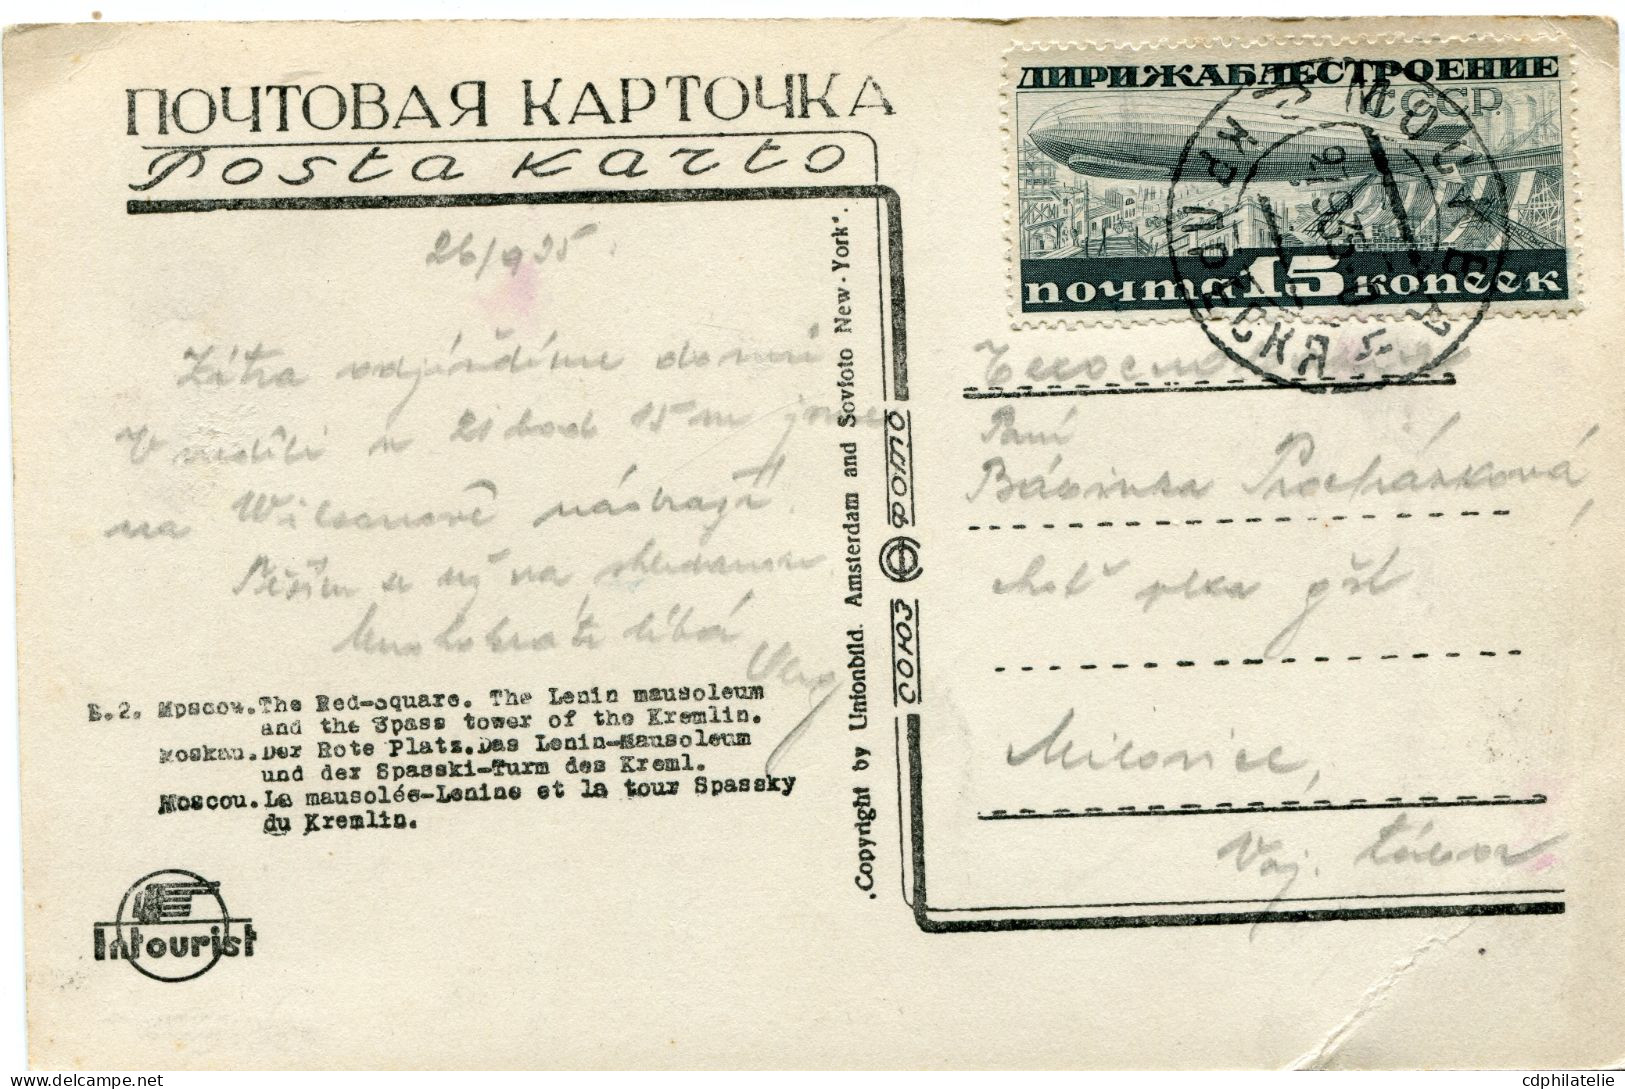 ПОЧТОВАЯ КАРТОЧКА
Posta karto
26/9 35.
Zítra odjíždíme domů
V neděli v 21 hod 15 m jsme
na Wilsonově nádraží.
Těším se již na shledanou
Mnohokráte líbá
E.2. Moscow.The Red-square. The Lenin mausoleum
and the Spass tower of the Kremlin.
Moskau.Der Rote Platz.Das Lenin-Mausoleum
und der Spasski-Turm des Kreml.
Moscou.La mausolée-Lenine et la tour Spassky
du Kremlin.
Intourist
Copyright by Unionbild. Amsterdam and Sovfoto New-York".
СОЮЗ ФОТО
ДИРИЖАБЛЕСТРОЕНИЕ
СССР.
почта 15 копеек
МОСКВА
Чехословакия
Paní
Procházková,
choť
Milovice,
Voj. tábor
cdphilatelie